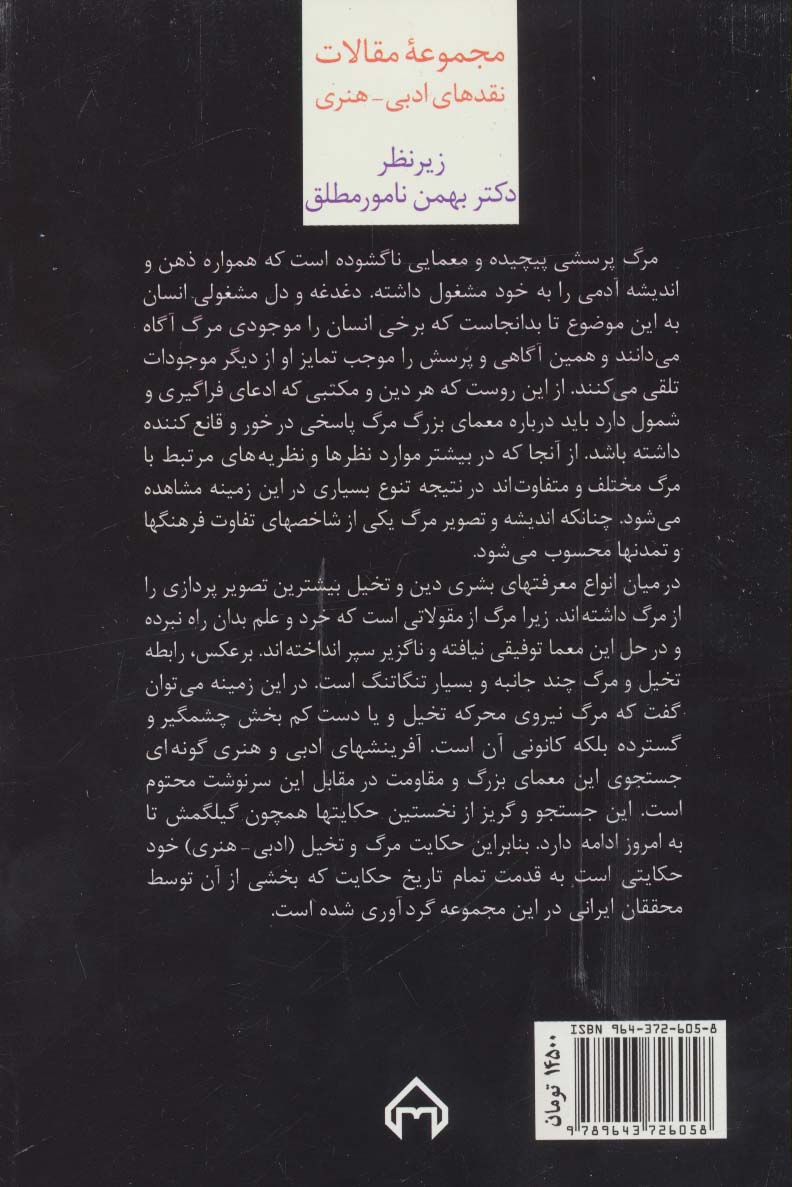 مجموعهٔ مقالات
نقدهای ادبی - هنری
زیرنظر
دکتر بهمن نامورمطلق
مرگ پرسشی پیچیده و معمایی ناگشوده است که همواره ذهن و
اندیشه آدمی را به خود مشغول داشته. دغدغه و دل مشغولی انسان
به این موضوع تا بدانجاست که برخی انسان را موجودی مرگ آگاه
می‌دانند و همین آگاهی و پرسش را موجب تمایز او از دیگر موجودات
تلقی می‌کنند. از این روست که هر دین و مکتبی که ادعای فراگیری و
شمول دارد باید درباره معمای بزرگ مرگ پاسخی در خور و قانع کننده
داشته باشد. از آنجا که در بیشتر موارد نظرها و نظریه‌های مرتبط با
مرگ مختلف و متفاوت‌اند در نتیجه تنوع بسیاری در این زمینه مشاهده
می‌شود. چنانکه اندیشه و تصویر مرگ یکی از شاخصهای تفاوت فرهنگها
و تمدنها محسوب می‌شود.
در میان انواع معرفتهای بشری دین و تخیل بیشترین تصویر پردازی را
از مرگ داشته‌اند. زیرا مرگ از مقولاتی است که خرد و علم بدان راه نبرده
و در حل این معما توفیقی نیافته و ناگزیر سپر انداخته‌اند. برعکس، رابطه
تخیل و مرگ چند جانبه و بسیار تنگاتنگ است. در این زمینه می‌توان
گفت که مرگ نیروی محرکه تخیل و یا دست کم بخش چشمگیر و
گسترده بلکه کانونی آن است. آفرینشهای ادبی و هنری گونه‌ای
جستجوی این معمای بزرگ و مقاومت در مقابل این سرنوشت محتوم
است. این جستجو و گریز از نخستین حکایتها همچون گیلگمش تا
به امروز ادامه دارد. بنابراین حکایت مرگ و تخیل (ادبی - هنری) خود
حکایتی است به قدمت تمام تاریخ حکایت که بخشی از آن توسط
محققان ایرانی در این مجموعه گردآوری شده است.
ISBN 964-372-605-8
۱۴۵۰۰ تومان
9 789643 726058